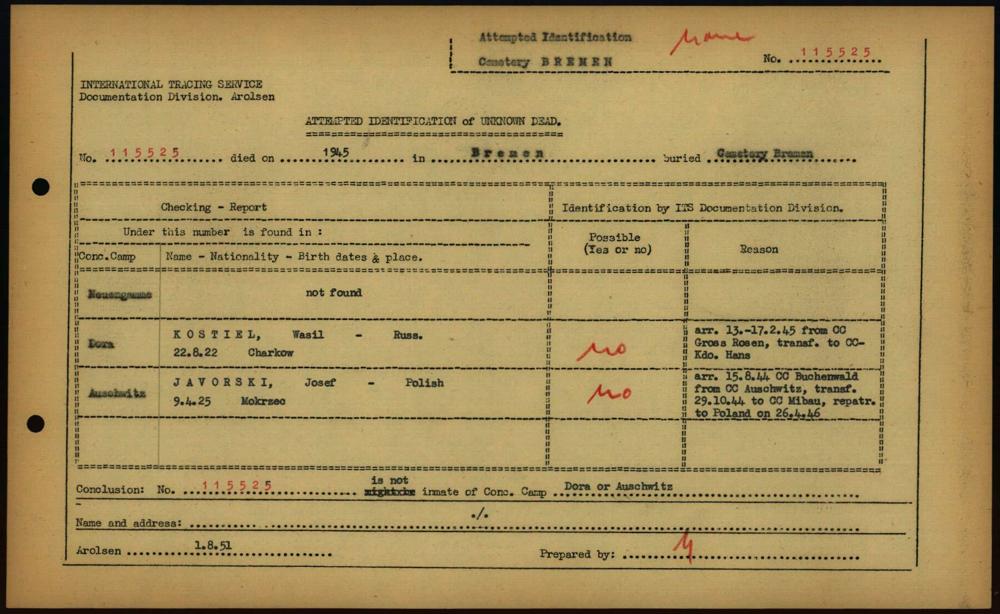 Attempted Identification none
Cemetery B R E M E N No. 115525
INTERNATIONAL TRACING SERVICE
Documentation Division. Arolsen
ATTEMPTED IDENTIFICATION of UNKNOWN DEAD.
No. 115525 died on 1945 in B r e m e n buried Cemetery Bremen
Checking - Report Identification by ITS Documentation Division.
Under this number is found in : Possible (Yes or no) Reason
Conc.Camp Name - Nationality - Birth dates & place.
Neuengamme not found
Dora K O S T I E L, Wasil - Russ. no arr. 13.-17.2.45 from CC
22.8.22 Charkow Gross Rosen, transf. to CC-
Kdo. Hans
Auschwitz J A V O R S K I, Josef - Polish no arr. 15.8.44 CC Buchenwald
9.4.25 Mokrzec from CC Auschwitz, transf.
29.10.44 to CC Mibau, repatr.
to Poland on 26.4.46
is not
Conclusion: No. 115525 might be inmate of Conc. Camp Dora or Auschwitz
./.
Name and address:
Arolsen 1.8.51 Prepared by: